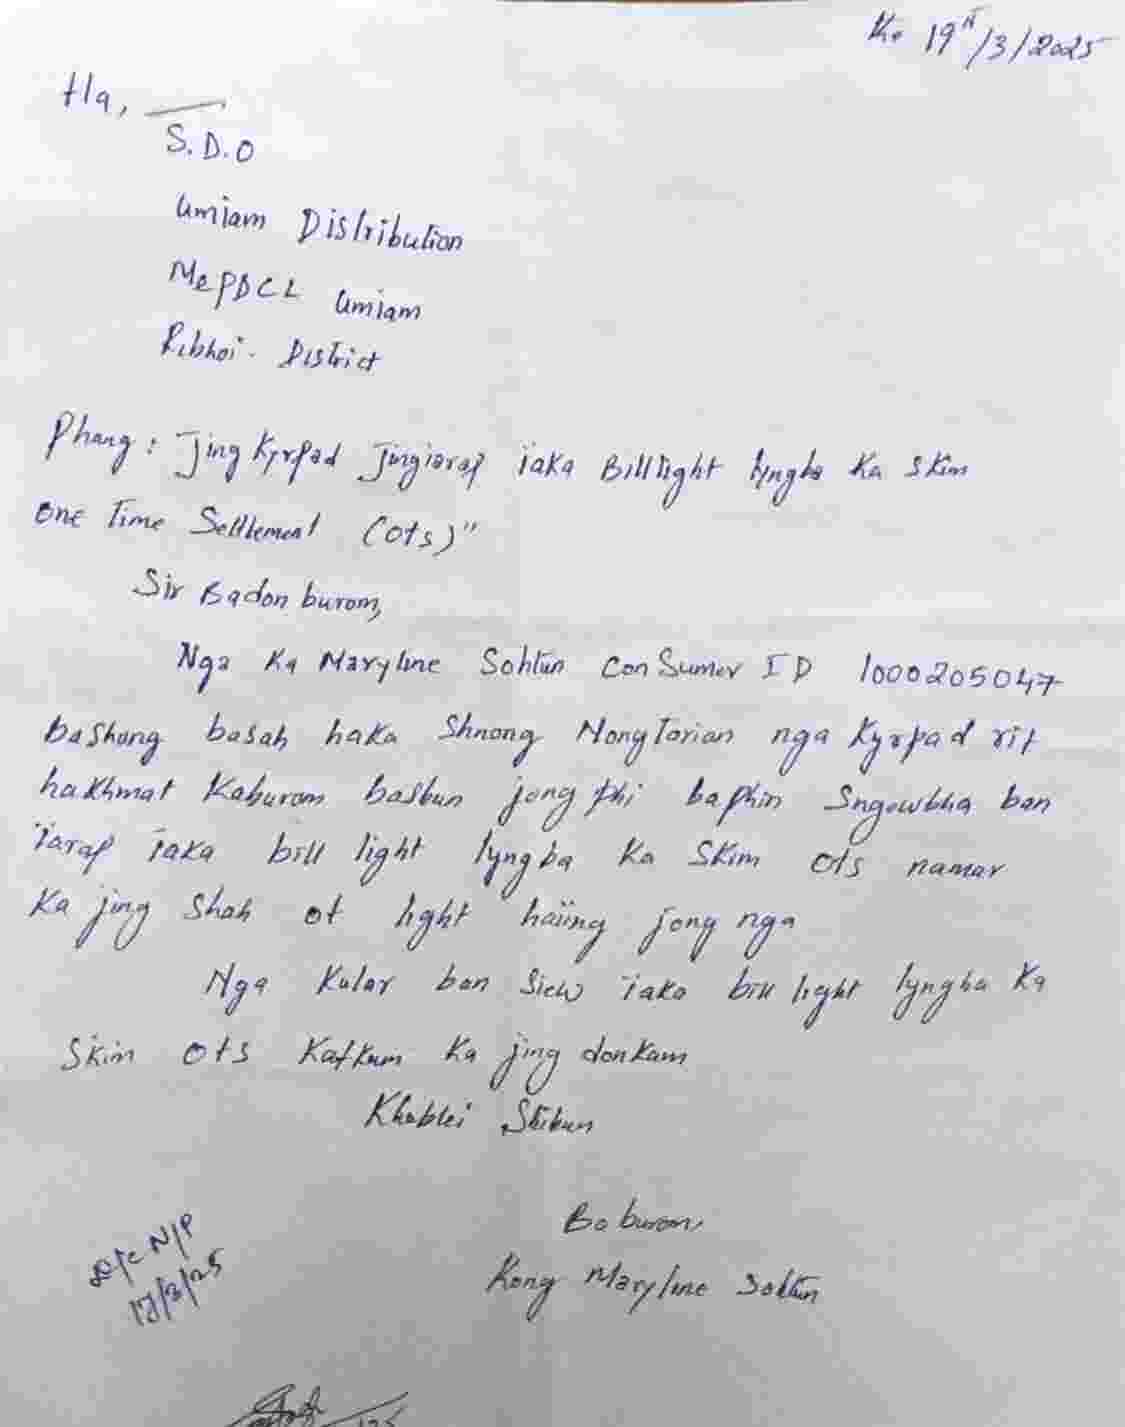 Ka 19/3/2025
Ha,
S.D.O
Umiam Distribution
MePDCL Umiam
Ribhoi. District
Phang: Jing Kyrpad Jingiarap ïaka Bill light lyngba Ka skim
One Time Settlement (Ots)"
Sir Badon burom,
Nga Ka Maryline Sohtun Consumer ID 1000205047
bashong basah haka Shnong Nongtarian nga Kyrpad rit
hakhmat Kaburom basbun jong phi baphin Sngewbha ban
ïarap ïaka bill light lyngba Ka Skim Ots namar
Ka jing Shah ot light haïing jong nga
Nga Kular ban Siew ïaka bill light lyngba Ka
Skim Ots Katkum Ka jing donkam
Khublei Shibun
Ba burom,
Kong Maryline Sohtun
N/P
/3/25